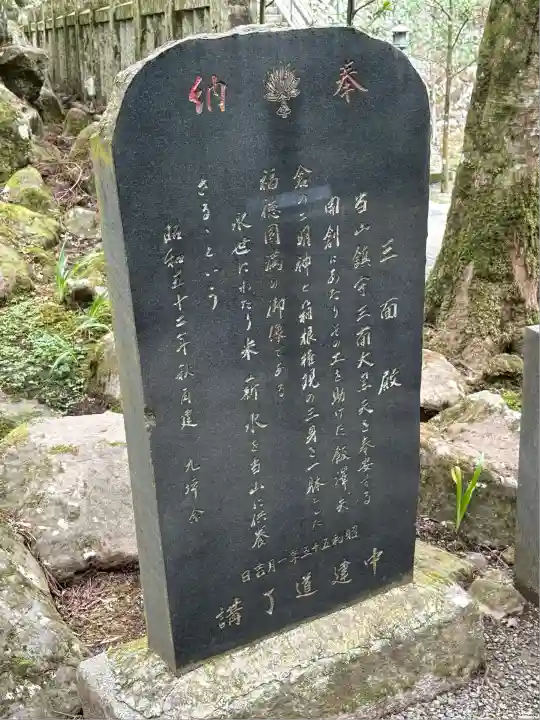 奉納
三面殿
当山鎮守三面大黒天を奉安する
開創にあたりその工を助けた飯澤天
倉の二明神と箱根権現の三身を一躰とした
福徳円満の御像である
永世にわたり米 薪 水を当山に供養
さるゝという
昭和五十二年秋再建
昭和五十五年一月吉日
中建道了講